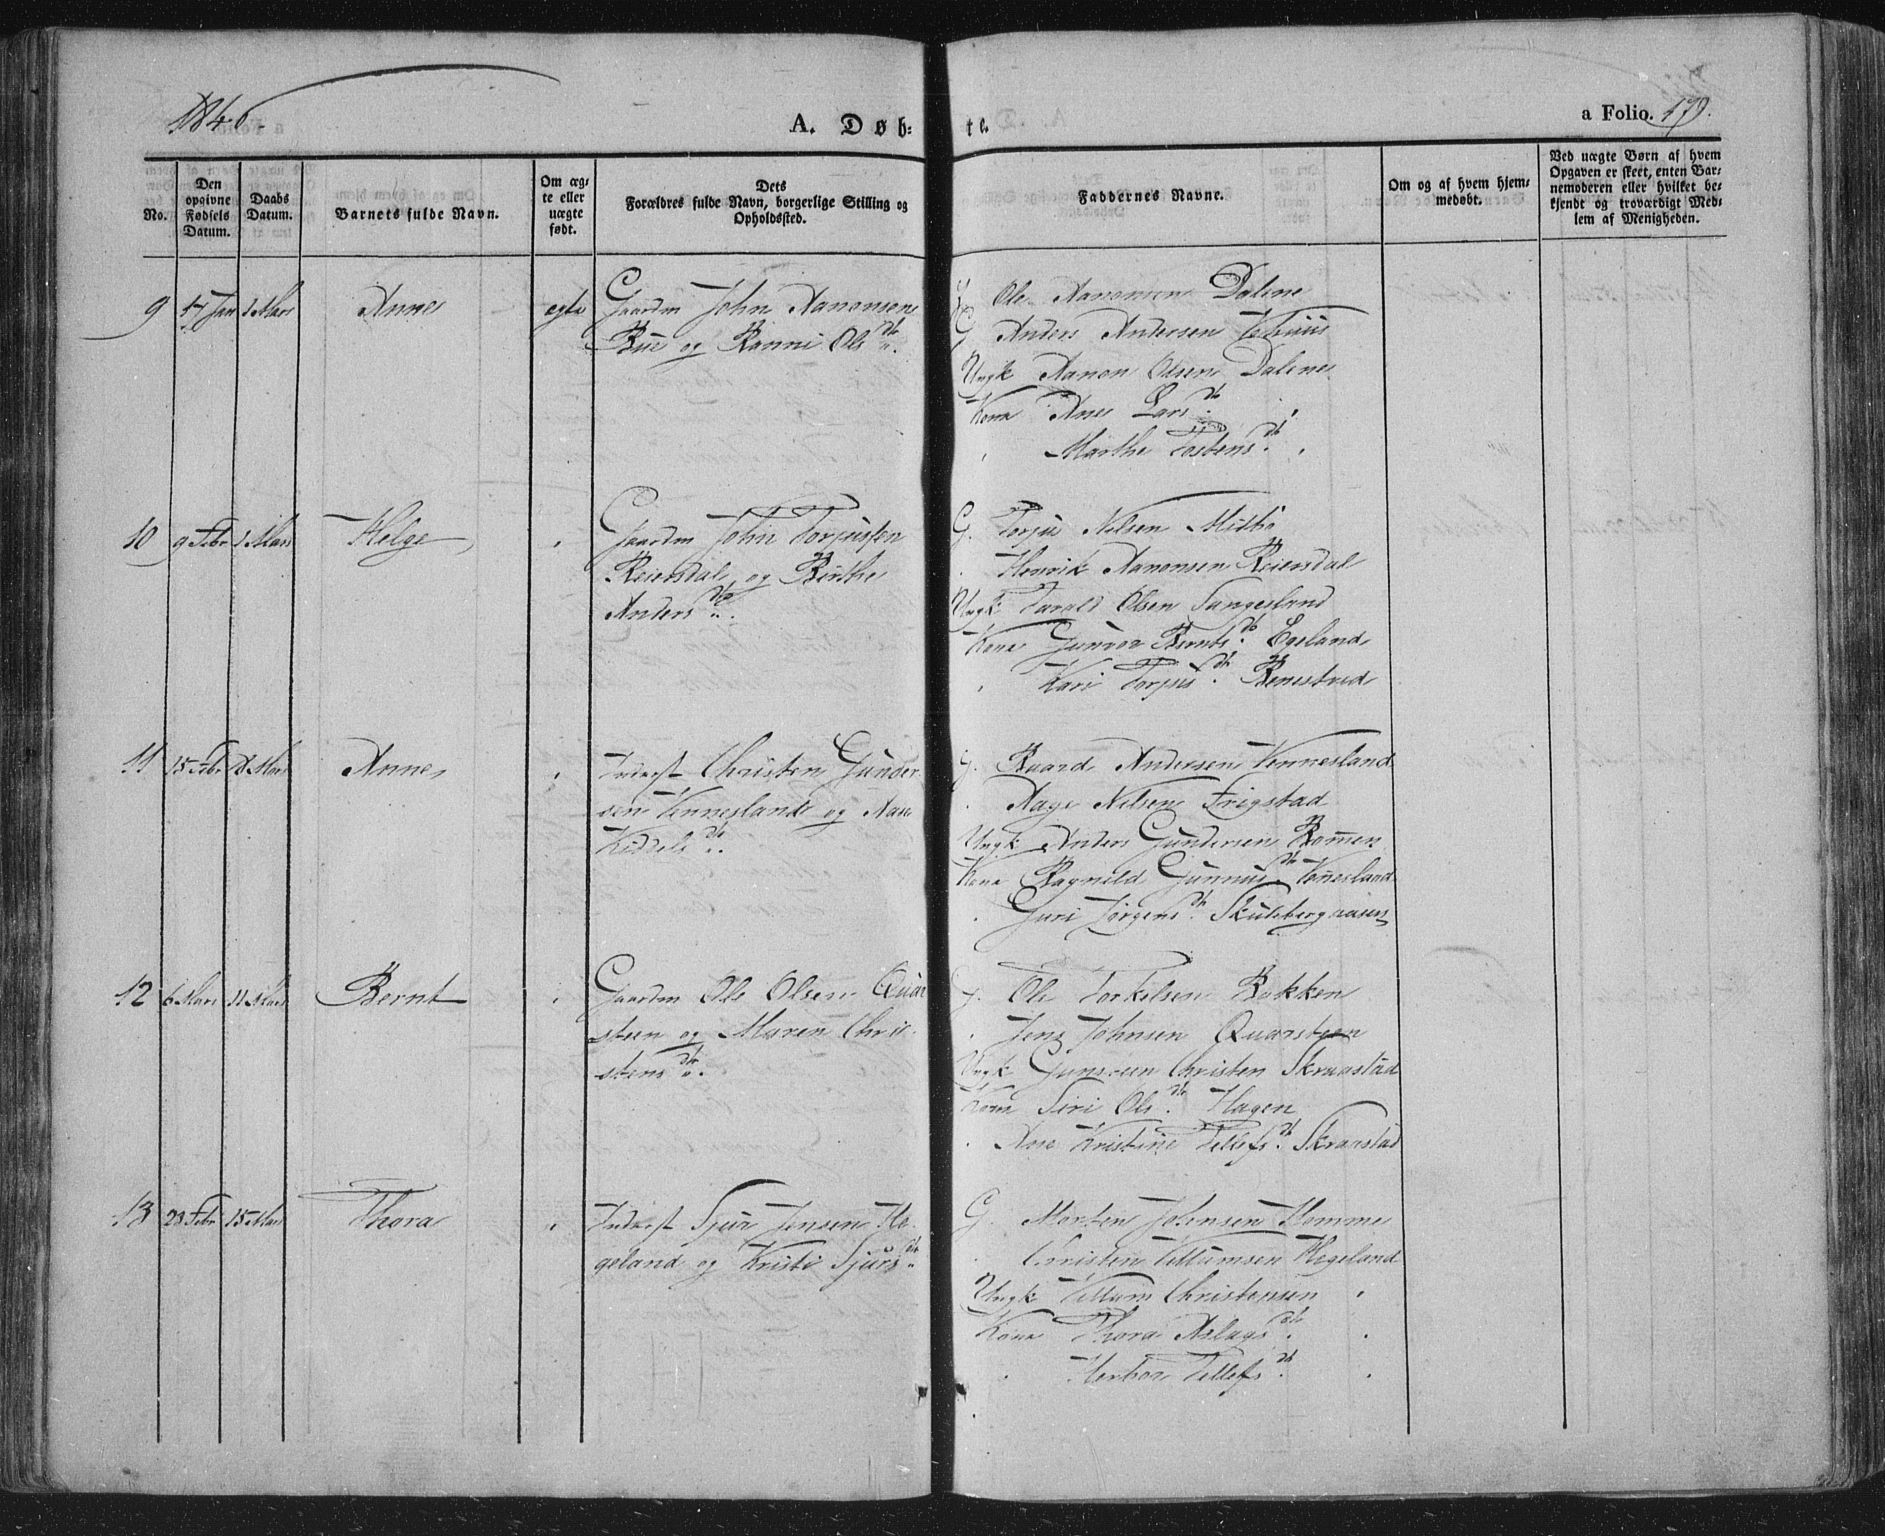 1846.
A. Døb-
te.
a Folio. 179.
No.
Den opgivne Fødsels Datum.
Daabs Datum.
Barnets fulde Navn.
Om ægte eller uægte født.
Dets Forældres fulde Navn, borgerlige Stilling og Opholdssted.
Faddernes Navne.
Om og af hvem hjemmedøbt.
Ved uægte Børn af hvem Opgaven er skeet, enten Barnemoderen eller hvilket bekjendt og troværdigt Medlem af Menigheden.
9 17 Jan 1 Mars Anne egte Gaardm John Aanonsen
Bue og Ranni Ols dtr.
G. Ole Aanonsen Dalene
G Anders Andersen Vehuus
Ungk Aanon Olsen Dalene
Kone Anne Lars dt. "
" Marthe Tostens dt. "
10 9 Febr 1 Mars Helge " Gaardm John Torjussen
Reiersdal og Birthe
Anders dtr.
G. Torju Nilsen Midbø
" Henrik Aanonsen Reiersdal
Ungk Tarald Olsen Tangesland
Kone Gunvor Bernts dt. Egeland
" Kari Torjus dt. Benestved
11 15 Febr 8 Mars Anne " Inderst Christen Gunder-
sen Vennesland og Aase
Kiddels dtr.
G. Baard Andersen Vennesland
" Aage Nilsen Frigstad
Ungk Anders Gundersen Rommen
Kone Ragnild Gunnus dt. Venesland
" Guri Jørgens dt. Skulsbergaasen
12 6 Mars 11 Mars Bernt " Gaardm Ole Olsen Quar
steen og Maren Chri-
stens dtr.
G. Ole Torkelsen Bakken
" Jens Johnsen Quarsteen
Ungk Christen Skraastad
Kone Siri Ols dt. Hagen
" Ane Kristine Tellefs dt. Skraastad
13 23 Febr 15 Mars Thora " Inderst Sjur Jensen He-
geland og Kristi Sjurs dtr
G. Morten Johnsen Homme
" Christen Villumsen Hegeland
Ungk Villum Christensen "
Kone Thora Aslags dt. "
" Herbor Tellefs dt. "